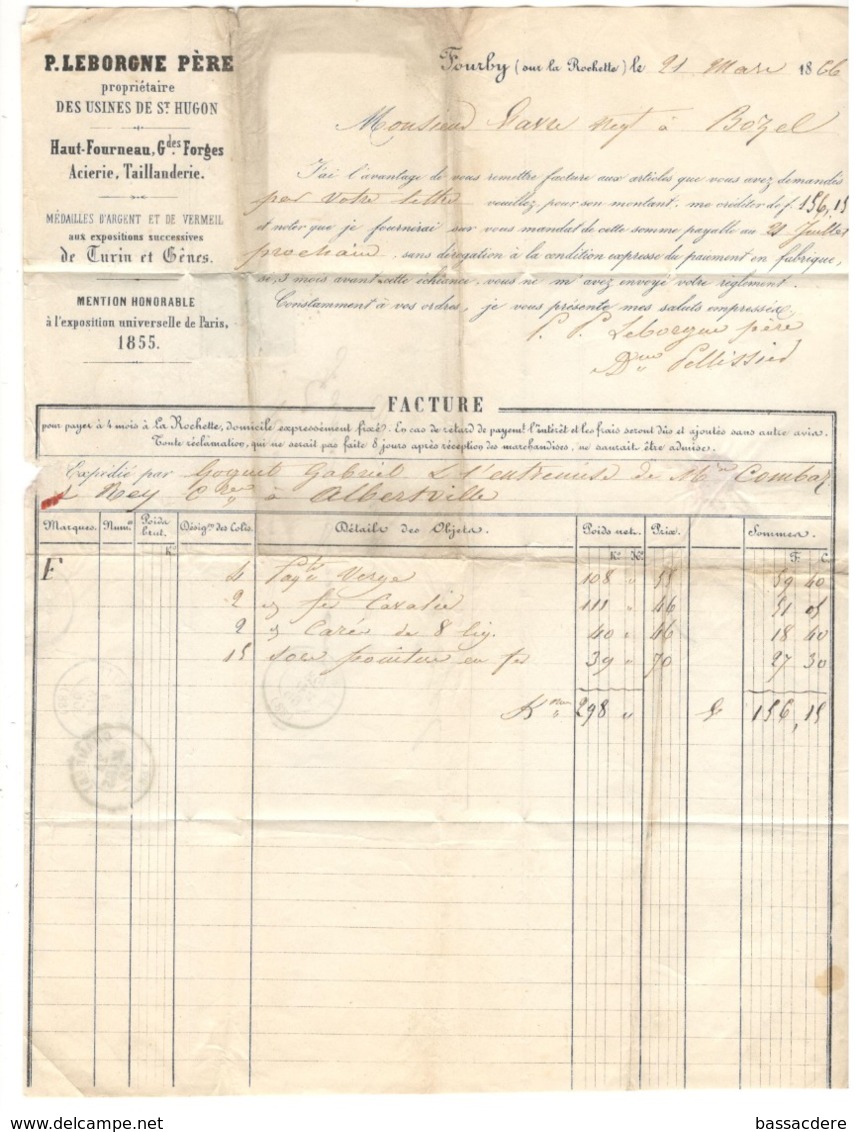 P. LEBORGNE PÈRE
propriétaire
DES USINES DE St HUGON
Haut-Fourneau, Gdes Forges
Acierie, Taillanderie.
MÉDAILLES D'ARGENT ET DE VERMEIL
aux expositions successives
de Turin et Gênes.
MENTION HONORABLE
à l'exposition universelle de Paris,
1855.
Fourby (sur la Rochette) le 21 Mars 1866
Monsieur Favre Negt à Bozel
J'ai l'avantage de vous remettre facture aux articles que vous avez demandés
par votre lettre veuillez pour son montant me créditer de f. 156,15
et noter que je fournirai sur vous mandat de cette somme payable au 21 Juillet
prochain, sans dérogation à la condition expresse du paiement en fabrique,
si, 3 mois avant cette échéance, vous ne m'avez envoyé votre réglement.
Constamment à vos ordres, je vous présente mes saluts empressés,
P. P. Leborgne père
Pellissier
FACTURE
pour payer à 4 mois à La Rochette, domicile expressément fixé. En cas de retard de payemt l'intérêt et les frais seront dûs et ajoutés sans autre avis.
Toute réclamation, qui ne serait pas faite 8 jours après réception des marchandises, ne saurait être admise.
Expédié par Goguet Gabriel à l'entremise de Mrs Combaz
& Rey à Albertville
Marques. Numos Poids brut. Désigon des Colis. Détails des Objets. Poids net. Prix. Sommes.
K. K. Hs. F. C.
F 4 Paqts Verge 108 " 55 59 40
2 " fer Cavalié 111 " 46 51 05
2 " Caréé de 8 lig. 40 " 46 18 40
15 en fer 39 " 70 27 30
298 " F 156,15
bassacdere